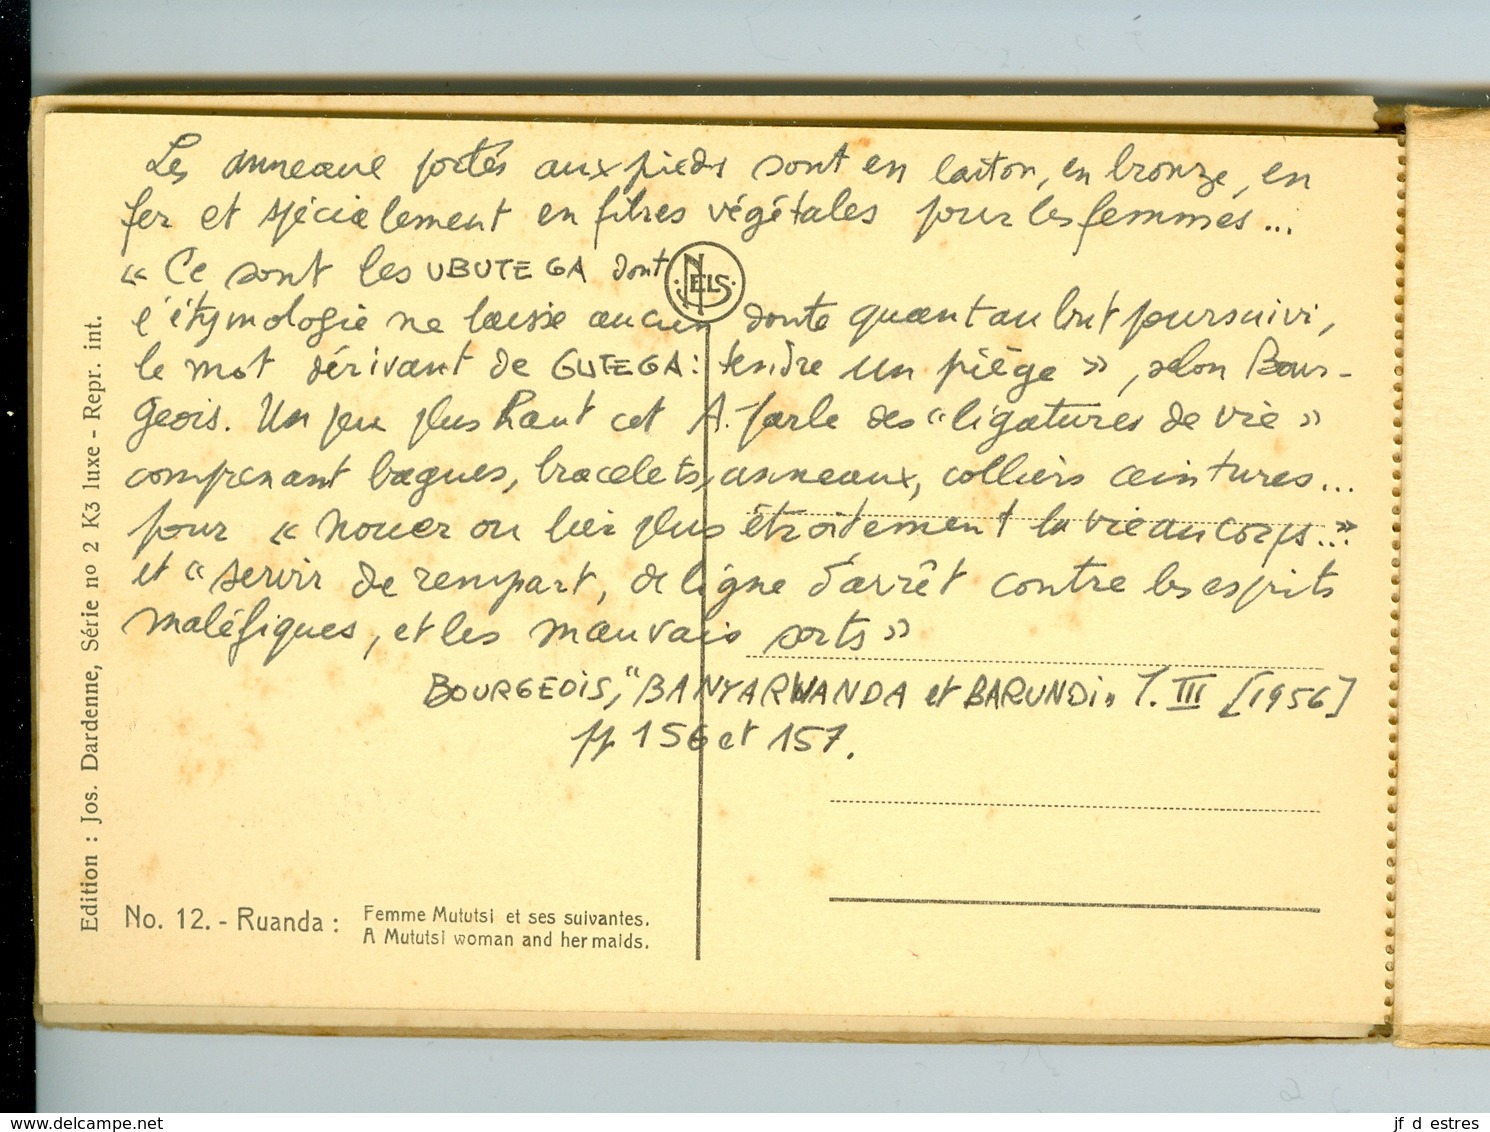 Les anneaux portés aux pieds sont en laiton, en bronze, en
fer et spécialement en fibres végétales pour les femmes...
« Ce sont les UBUTEGA dont
l'étymologie ne laisse aucun doute quant au but poursuivi,
le mot dérivant de GUTEGA : tendre un piège », selon Bour-
geois. Un peu plus haut cet A. parle des "ligatures de vie"
comprenant bagues, bracelets, anneaux, colliers ceintures...
pour « nouer ou lier plus étroitement la vie au corps... »
et "servir de rempart, de ligne d'arrêt contre les esprits
maléfiques, et les mauvais sorts »
BOURGEOIS, "BANYARWANDA et BARUNDI" T. III [1956]
pp 156 et 157.
NELS
Edition : Jos. Dardenne, Série nº 2 K3 luxe - Repr. int.
No. 12. - Ruanda : Femme Mututsi et ses suivantes.
A Mututsi woman and her maids.
www.delcampe.net
jf d estres